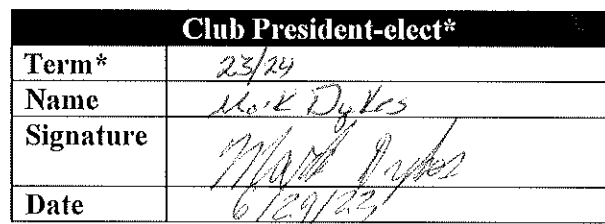 Club President-elect*
Term* 23/24
Name Mark Dykes
Signature Mark Dykes
Date 6/29/23